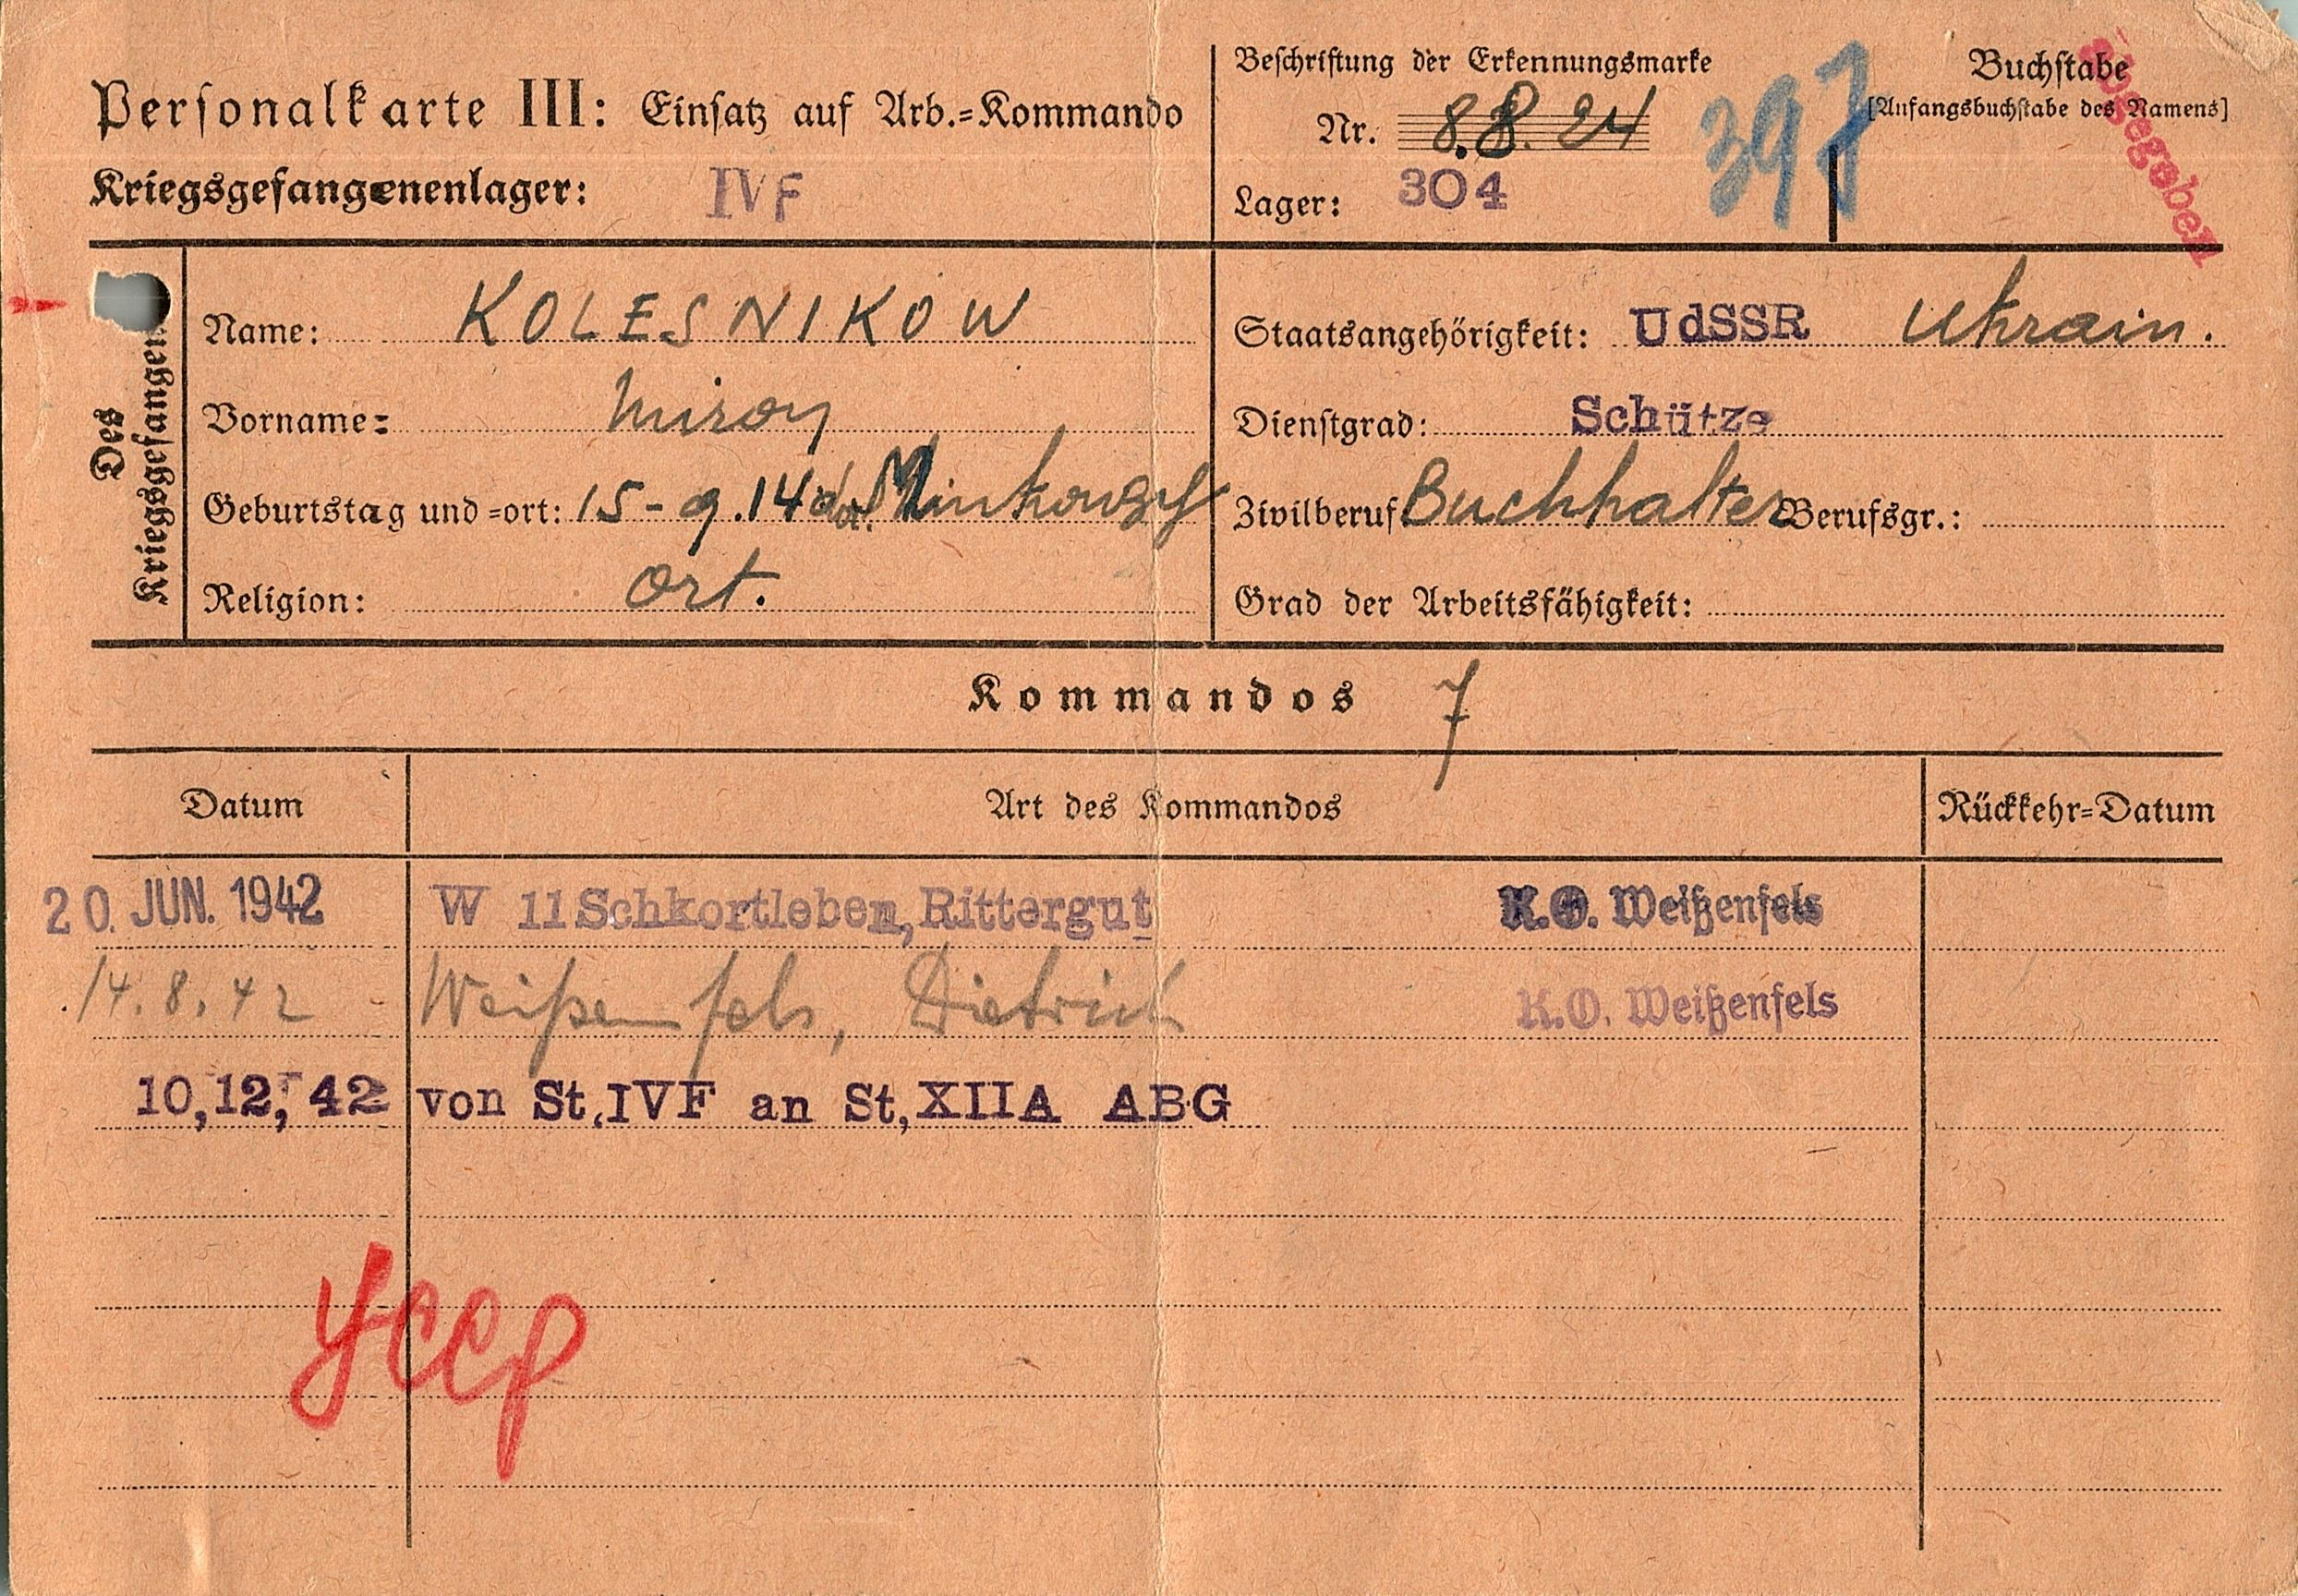 Personalkarte III: Einsatz auf Arb.=Kommando
Kriegsgefangenenlager: IVF
Beschriftung der Erkennungsmarke
Nr. 8824
Lager: 304
397
Buchstabe
[Anfangsbuchstabe des Namens]
Des Kriegsgefangen
Name: KOLESNIKOW
Vorname: Miron
Geburtstag und =ort: 15-9.14
Religion: Ort.
Staatsangehörigkeit: UdSSR Ukrain.
Dienstgrad: Schütze
Zivilberuf Buchhalter Berufsgr.:
Grad der Arbeitsfähigkeit:
Kommandos 7
Datum Art des Kommandos Rückkehr=Datum
20. JUN. 1942 W 11 Schkortleben, Rittergut K.O. Weißenfels
14.8.42 Weißenfels, Dietrich K.O. Weißenfels
10,12, 42 von St,IVF an St,XIIA ABG
УССР